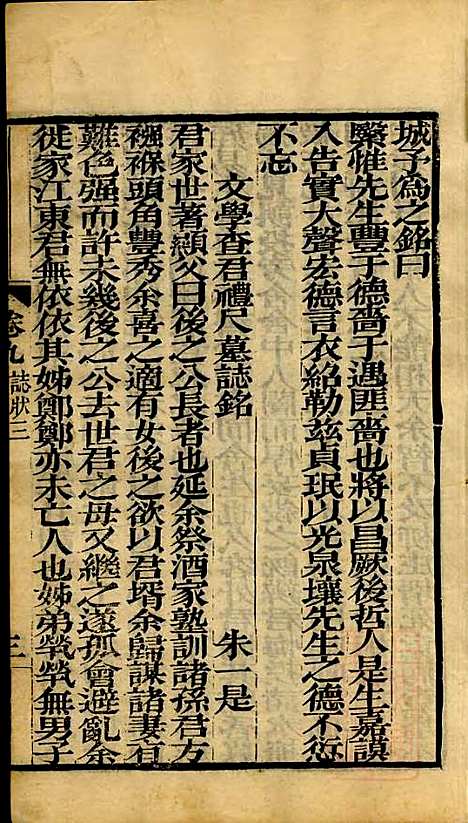 城予為之銘曰
繄惟先生豐于德嗇于遇匪嗇也將以昌厥後哲人是生嘉謨
入告實大聲宏德言衣紹勒兹貞珉以光泉壤先生之德不愆
不忘
文學查君禮尺墓誌銘
朱一是
君家世著顯父曰後之公長者也延余祭酒家塾訓諸孫君方
襁褓頭角豐秀余喜之適有女後之欲以君壻余歸謀諸妻有
難色强而許未幾後之公去世君之母又繼之遂孤會避亂余
徙家江東君無依依其姊鄭鄭亦未亡人也姊弟煢煢無男子
卷九 誌狀三
三